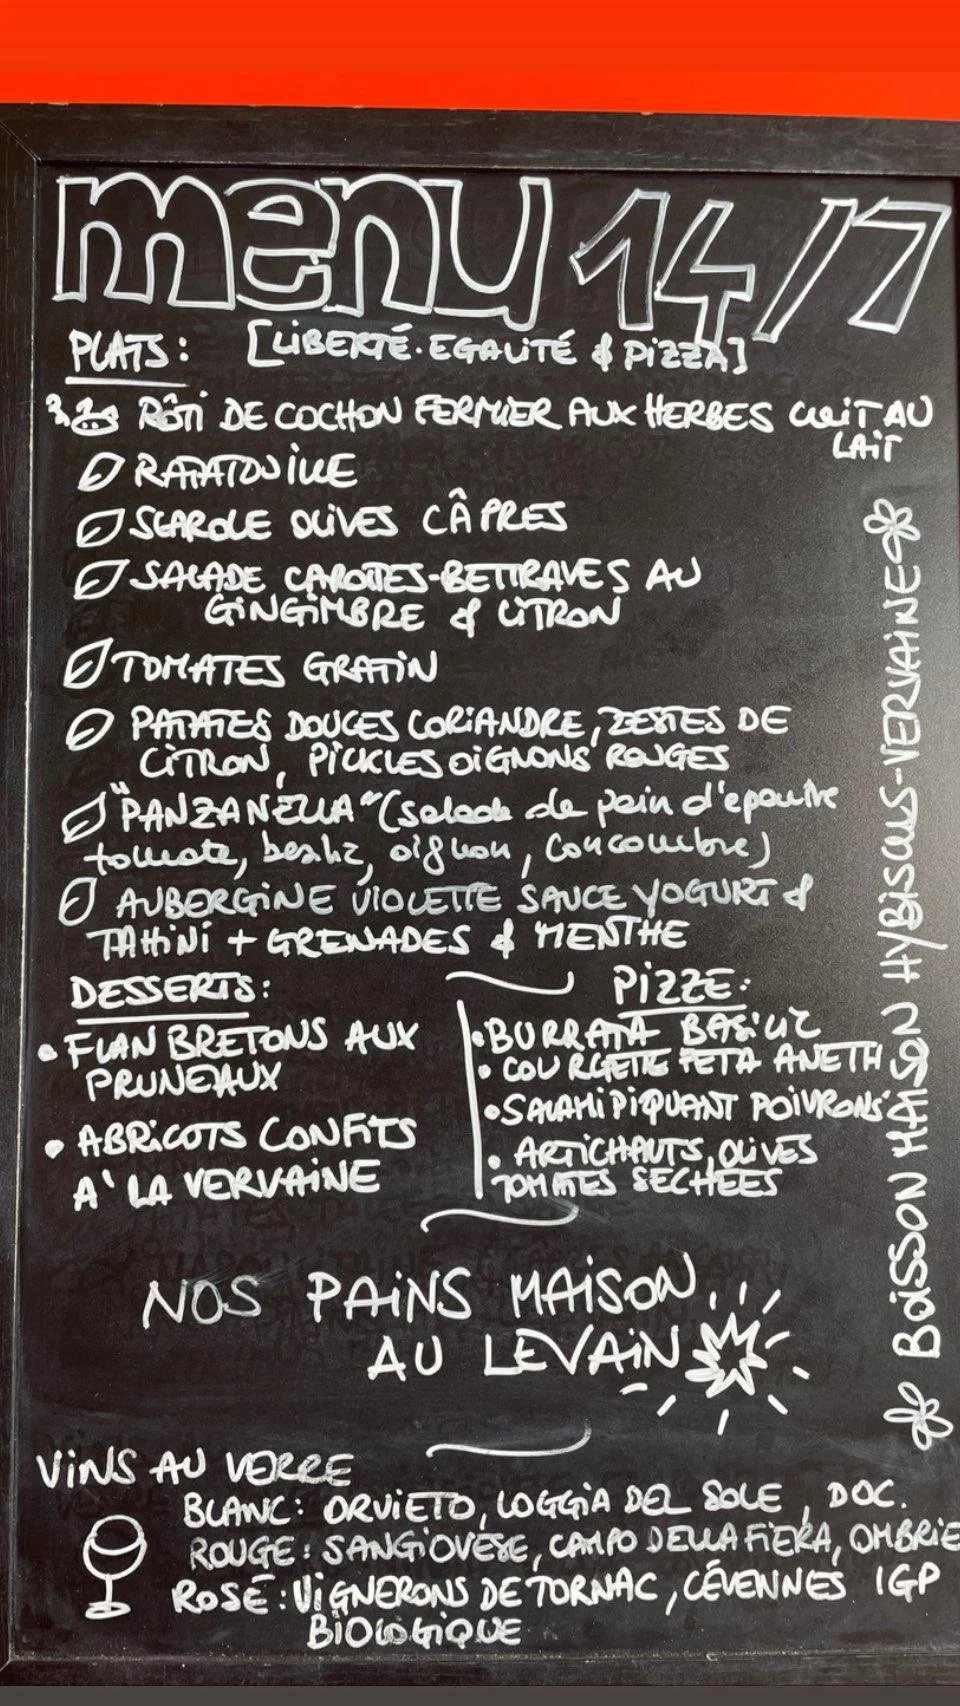 menu 14/7
PLATS: [LIBERTÉ.EGALITÉ & PIZZA]
RÔTI DE COCHON FERMIER AUX HERBES CUIT AU
LAIT
RATATOUILLE
SCAROLE OLIVES CÂPRES
SALADE CAROTTES-BETTRAVES AU
GINGIMBRE & CITRON
TOMATES GRATIN
PATATES DOUCES CORIANDRE, ZESTES DE
CITRON, PICKLES OIGNONS ROUGES
"PANZANELLA" (salade de pain d'epautre
tomate, basilic, oignon, concombre)
AUBERGINE VIOLETTE SAUCE YOGURT &
TAHINI + GRENADES & MENTHE
DESSERTS:
• FLAN BRETONS AUX
PRUNEAUX
• ABRICOTS CONFITS
A' LA VERVAINE
PIZZE:
• BURRATA BASILIC
• COURGETTE FETA ANETH
• SALAMI PIQUANT POIVRONS
• ARTICHAUTS, OLIVES
TOMATES SECHEES
BOISSON MAISON HYBISCUS-VERVAINE
NOS PAINS MAISON
AU LEVAIN
VINS AU VERRE
BLANC: ORVIETO, LOGGIA DEL SOLE, DOC.
ROUGE: SANGIOVESE, CAMPO DELLA FIERA, OMBRIE
ROSE: VIGNERONS DE TORNAC, CÉVENNES IGP
BIOLOGIQUE